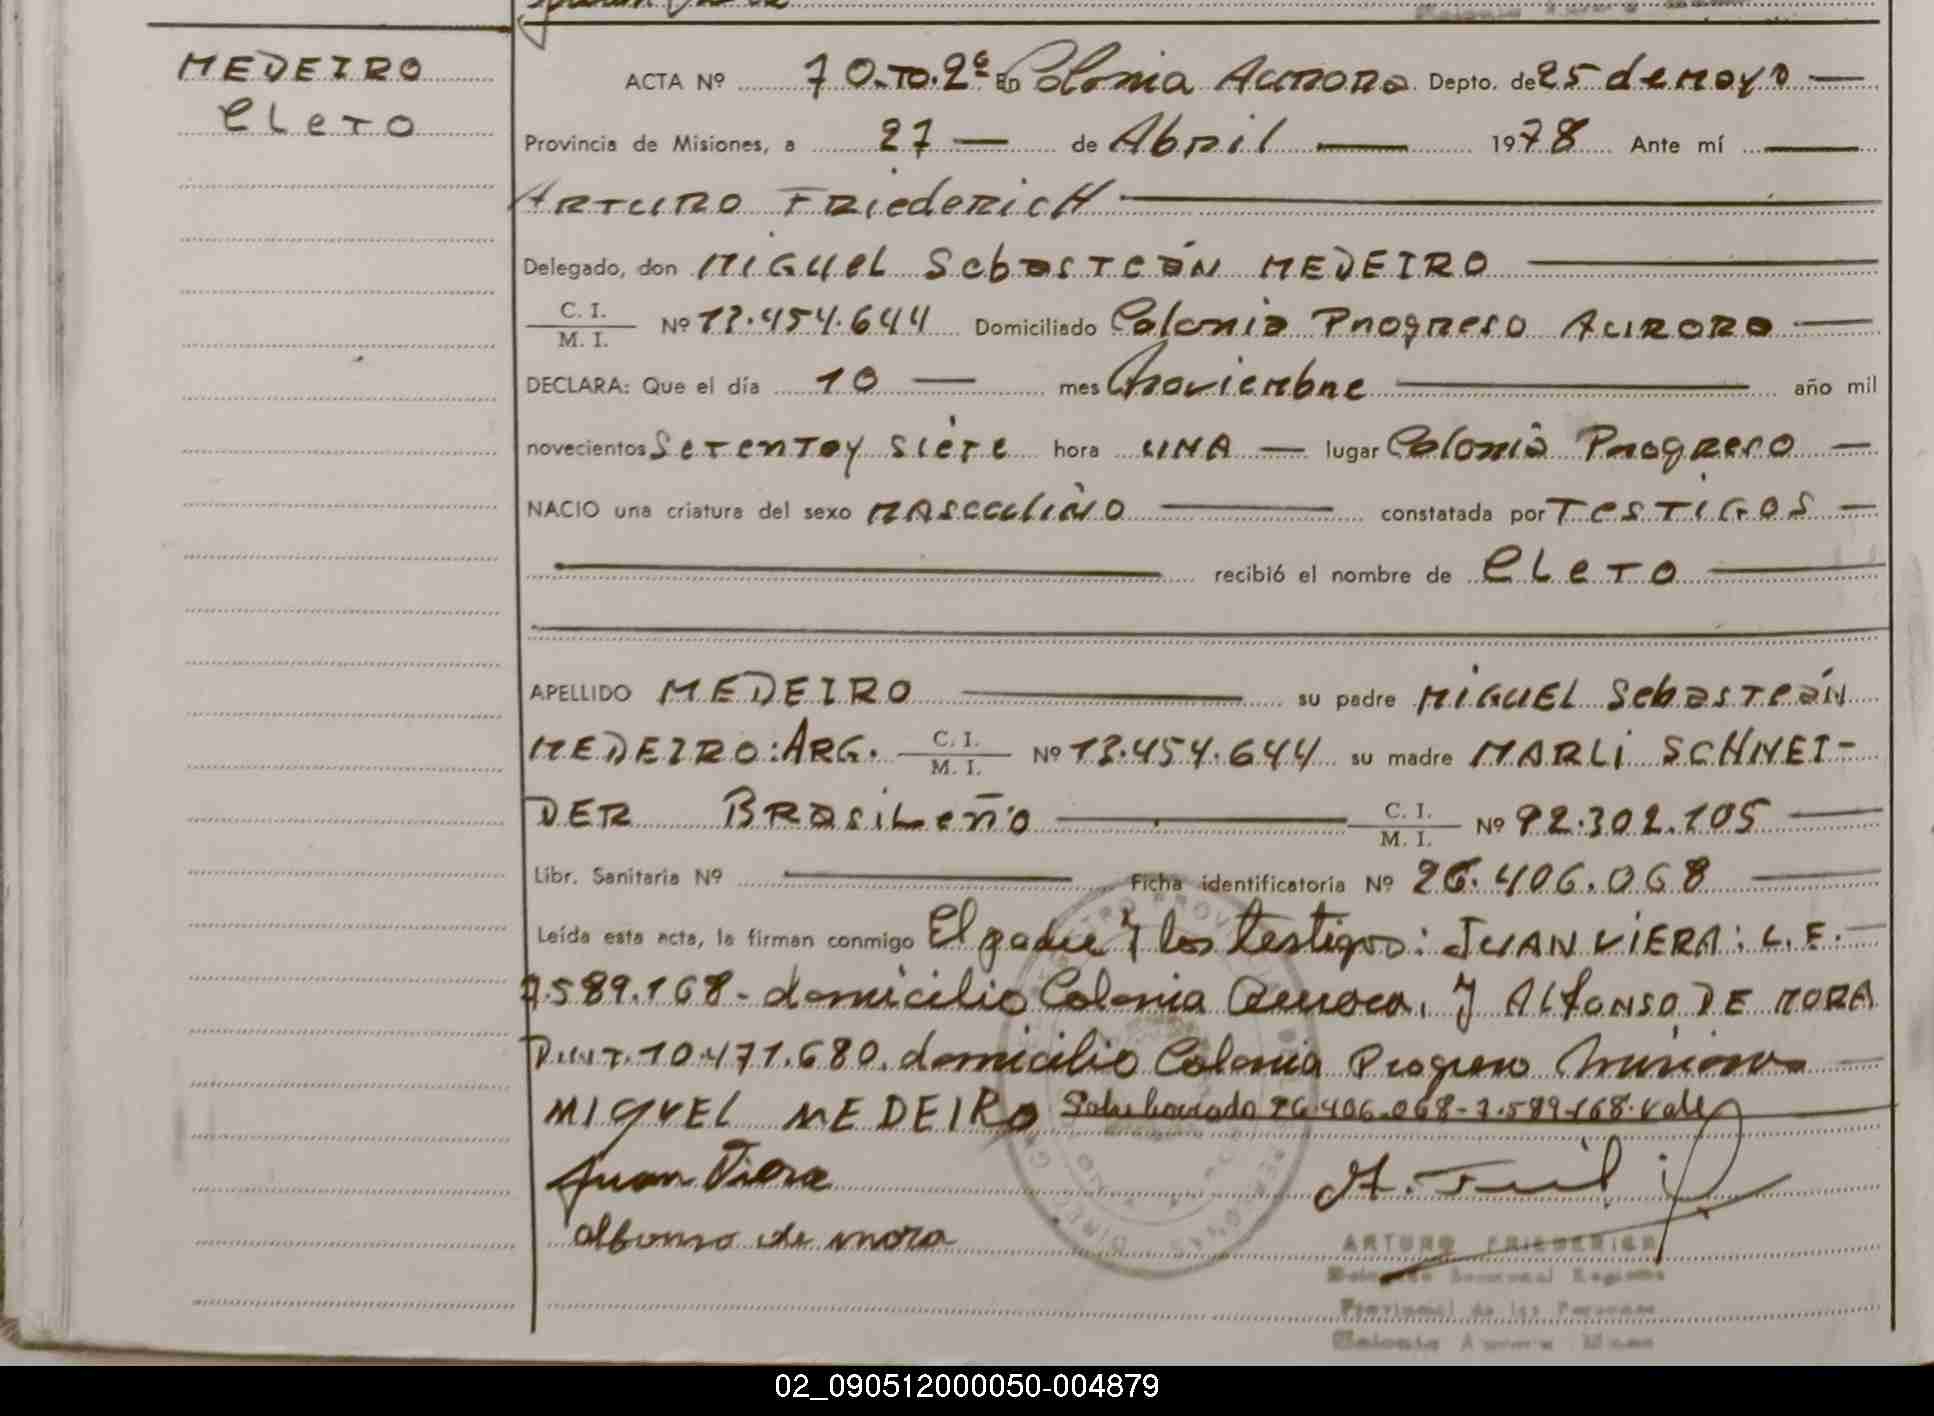 MEDEIRO
CLeTO
ACTA Nº 70-TO.2º En Colonia Aurora Depto. de 25 de Mayo
Provincia de Misiones, a 27 de Abril 1978 Ante mí
ARTURO FRiedericH
Delegado, don MiGUEL SebasTeán MEDEIRO
C. I.
M. I. Nº 13.454.644 Domiciliado Colonia Progreso Aurora
DECLARA: Que el día 10 mes Noviembre año mil
novecientos Setenta y siete hora UNA lugar Colonia Progreso
NACIO una criatura del sexo MASCULINO constatada por TesTiGOS
recibió el nombre de CLeTO
APELLIDO MEDEIRO su padre MiGUEL SebasTeán
MEDEIRO: ARG. C. I.
M. I. Nº 13.454.644 su madre MARLi SCHNEI-
DER BRasiLeño C. I.
M. I. Nº 92.302.105
Libr. Sanitaria Nº Ficha identificatoria Nº 26.406.068
Leída esta acta, la firman conmigo El padre y los testigos: JUAN VIERA: L.E.
7.589.168- domicilio Colonia Aurora, y ALfONSO DE MORA
10.471.680. domicilio Colonia Progreso Misiones
MIGUEL MEDEIRO Sobreborrado 26.406.068-7.589.168. Vale
Juan Viera
alfonso de mora
ARTURO FRIEDERICH
Provincial de las Personas
Colonia Aurora
02_090512000050-004879